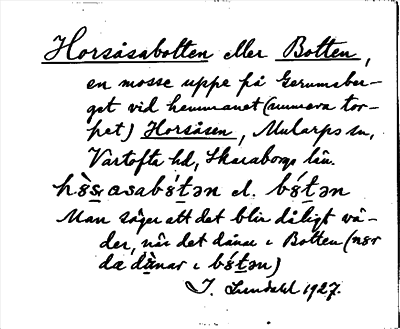 Horsåsabolten eller Bolten,
en mosse uppe på Gerumsber-
get vid hemmanet (numera tor-
pet) Horsåsen, Mularps sn,
Vartofta hd, Skaraborgs län.
hòs̱asabót̲ən el. bót̲ən
Man säger att det blir dåligt vä-
der, när det dånar i Bolten (nər
dæ dànar i bót̲ən)
J. Lundahl 1927.